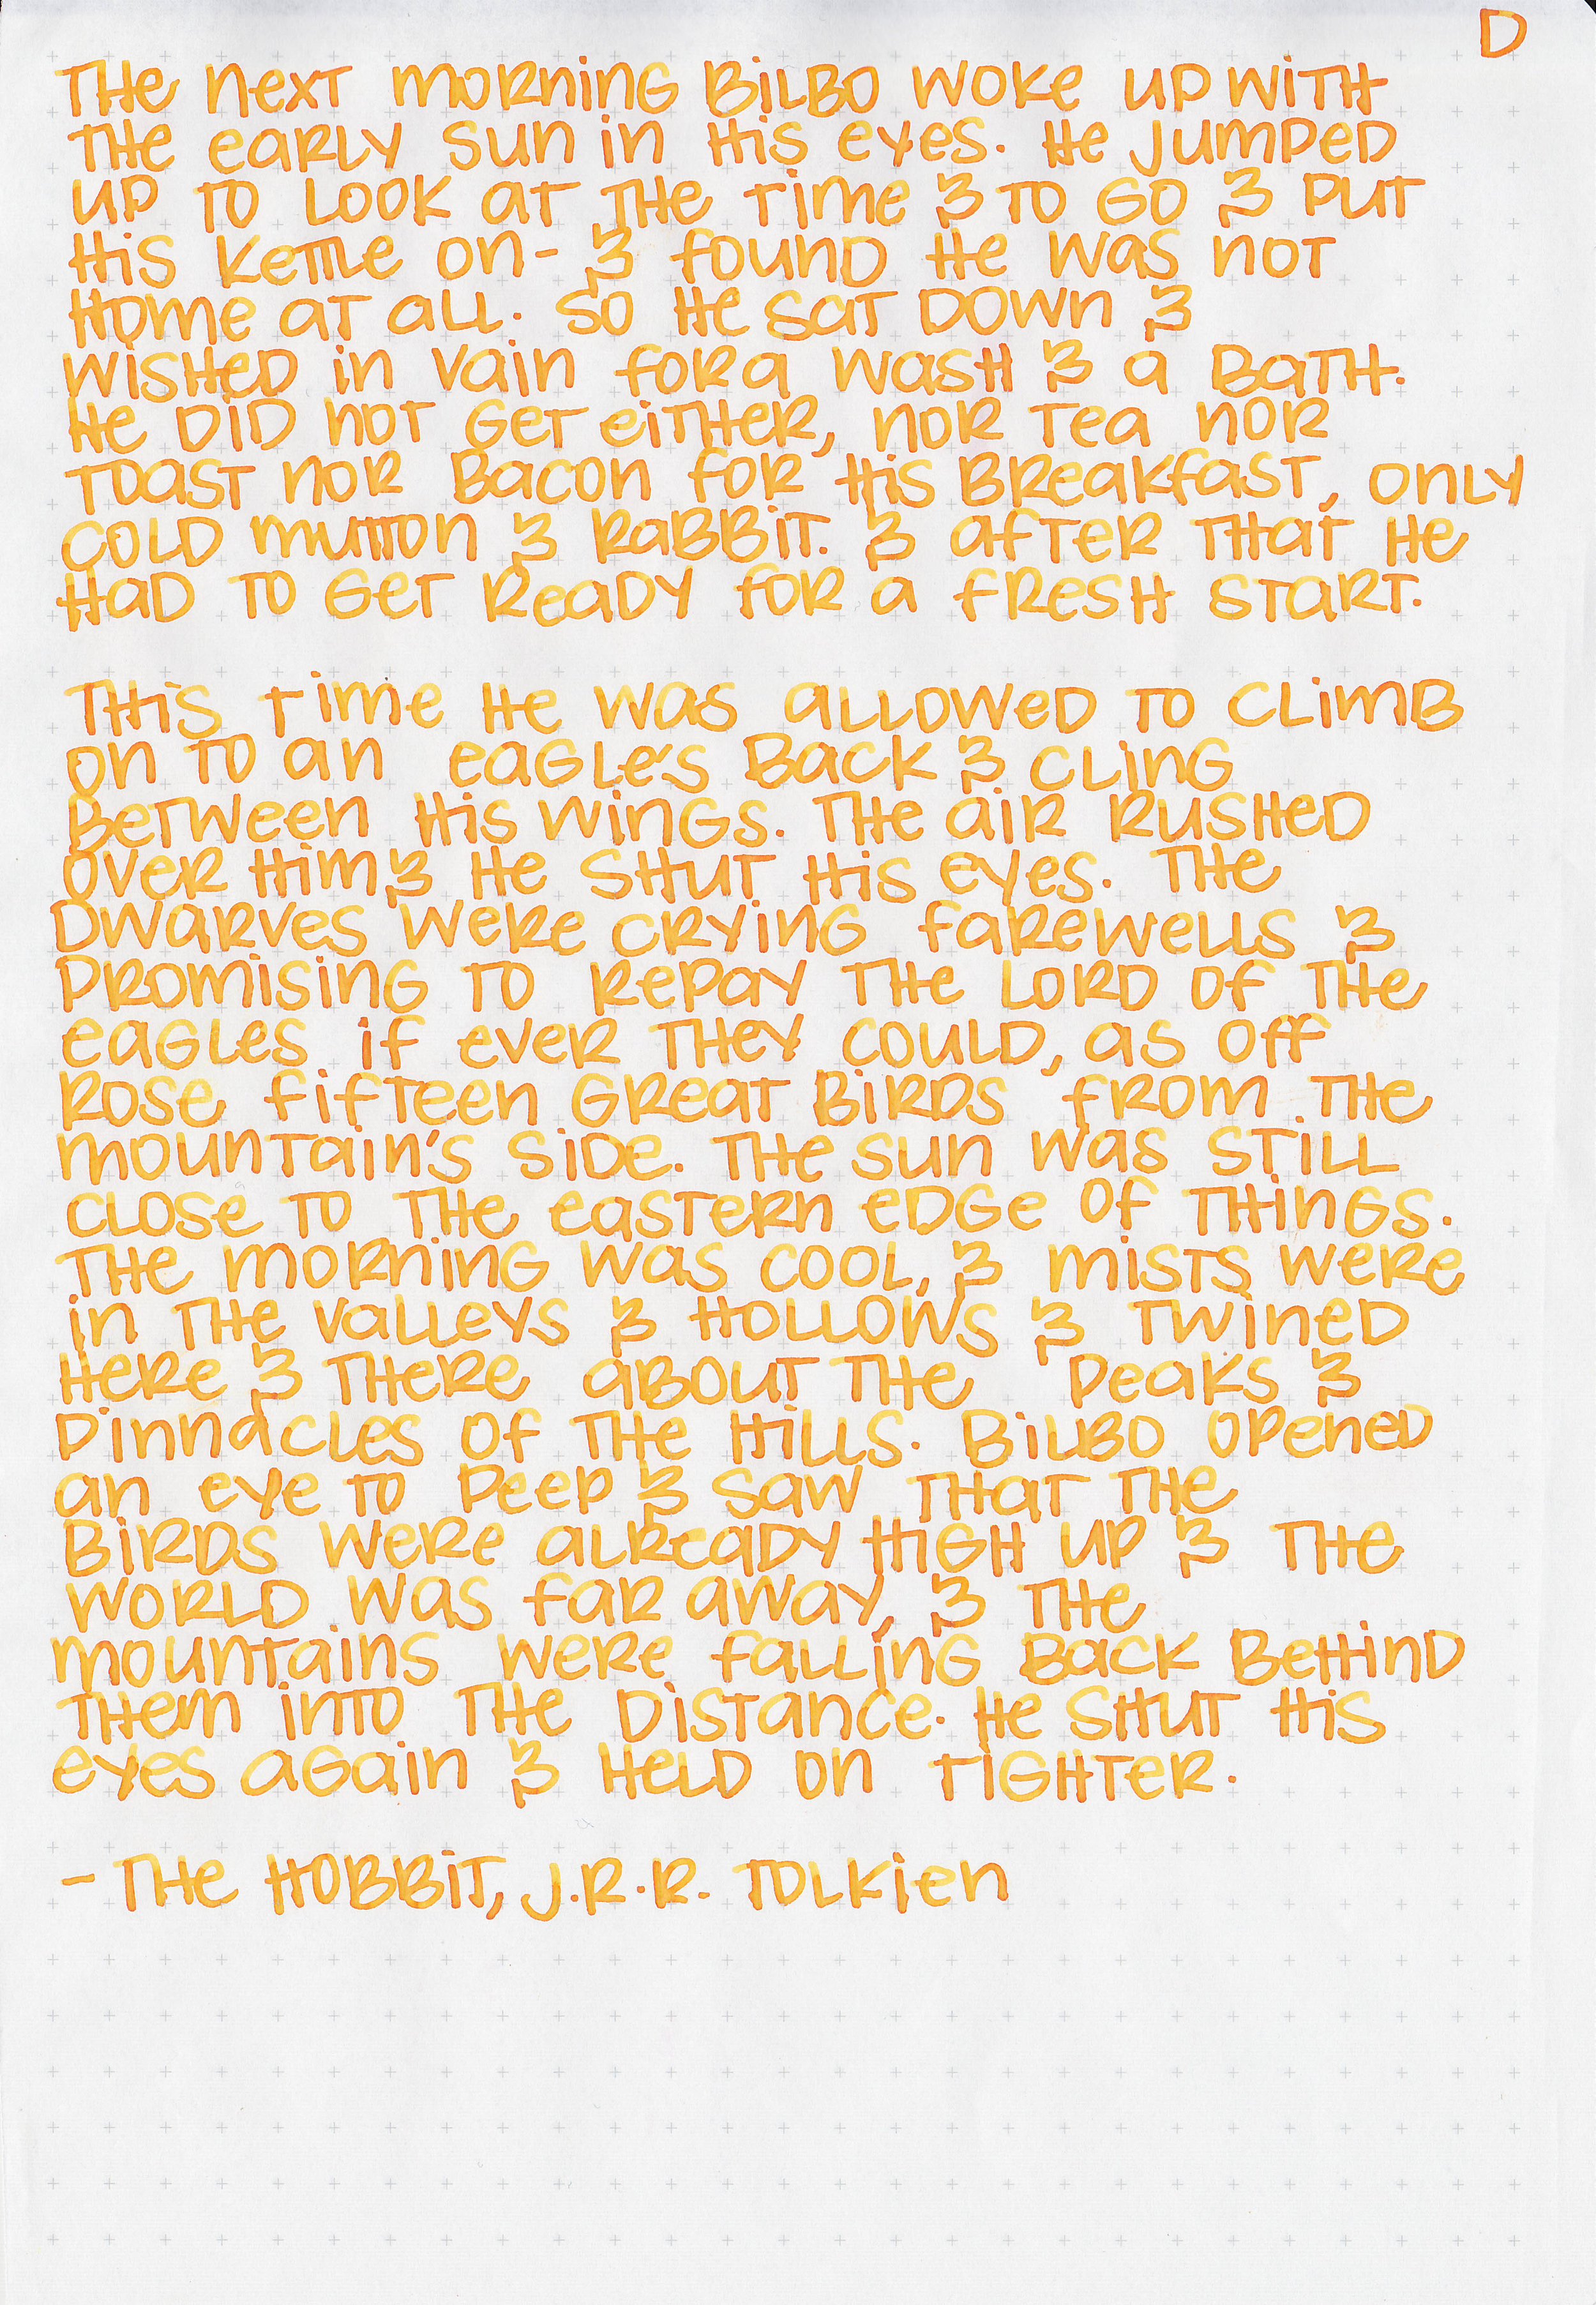 D
The next morning Bilbo woke up with
the early sun in his eyes. He jumped
up to look at the time & to go & put
his kettle on- & found he was not
home at all. So he sat down &
wished in vain for a wash & a bath.
He did not get either, nor tea nor
toast nor bacon for his breakfast, only
cold mutton & rabbit. & after that he
had to get ready for a fresh start.
This time he was allowed to climb
on to an eagle's back & cling
between his wings. The air rushed
over him & he shut his eyes. The
dwarves were crying farewells &
promising to repay the lord of the
eagles if ever they could, as off
rose fifteen great birds from the
mountain's side. The sun was still
close to the eastern edge of things.
The morning was cool, & mists were
in the valleys & hollows & twined
here & there about the peaks &
pinnacles of the hills. Bilbo opened
an eye to peep & saw that the
birds were already high up & the
world was far away, & the
mountains were falling back behind
them into the distance. He shut his
eyes again & held on tighter.
- The Hobbit, J.R.R. Tolkien